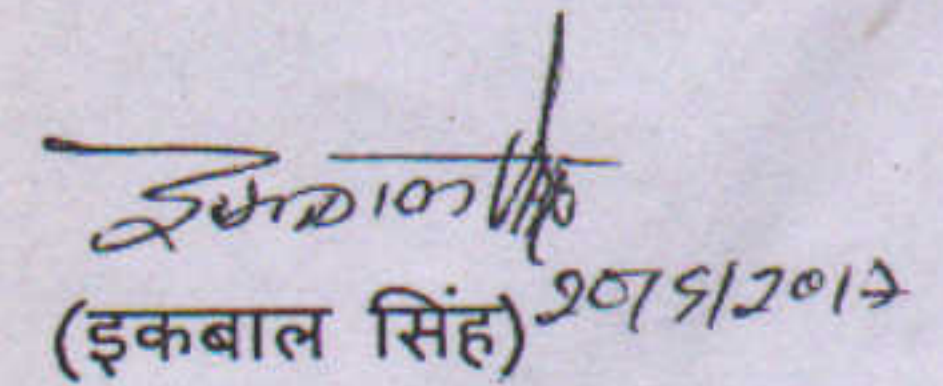 (इकबाल सिंह) 20/5/2017